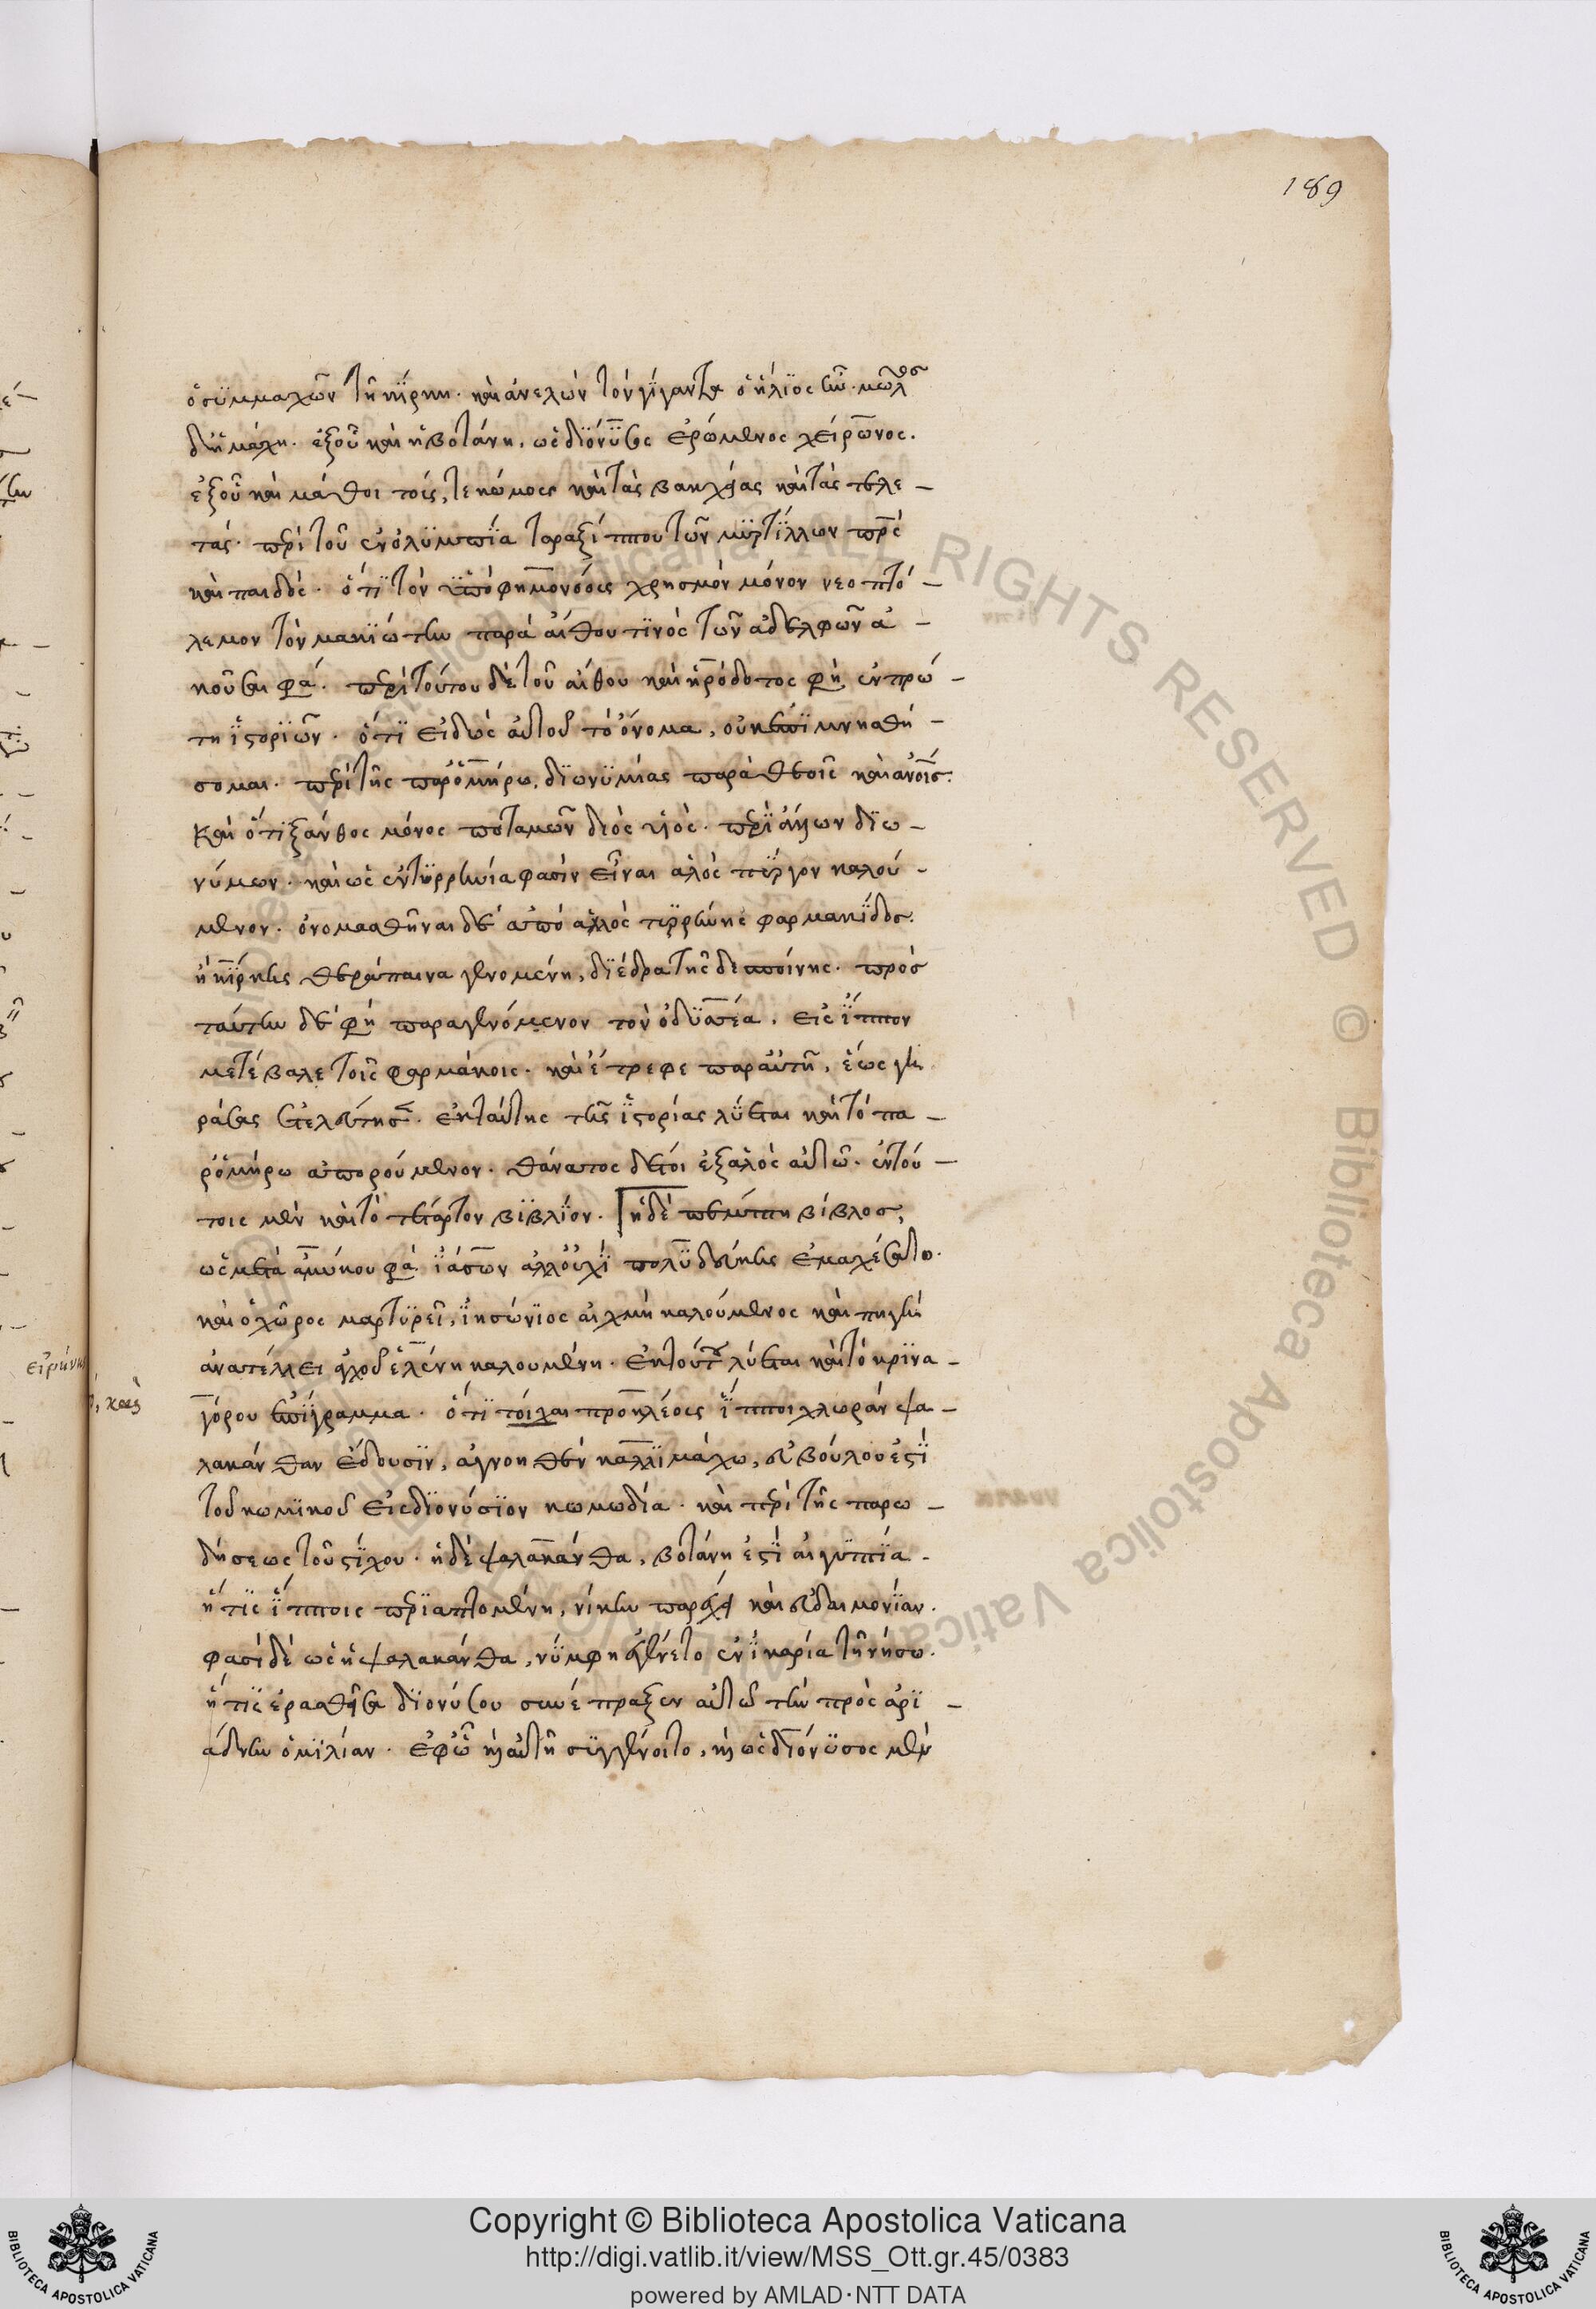 189
ὁ συμμαχῶν τῆ κίρκη. καὶ ἀνελὼν τὸν γίγαντα ὁ ἥλιος ἦν. μῶλος
δὲ ἡ μάχη. ἐξοῦ καὶ ἡ βοτάνη. ὡς διόνυσος ἐρώμενος χείρωνος.
ἐξοῦ καὶ μάθοι τούς, τε κώμους καὶ τὰς βακχείας καὶ τὰς τελε-
τάς. περὶ τοῦ ἐν ὀλυμπία ταραξίππου τῶν μυρτίλλων πρὸς
καὶ παιδὸς. ὅτι τὸν ὑπὸ φημονόης χρησμὸν μόνον νεοπτό-
λεμον τὸν μακιώτην παρὰ αἴθου τινὸς τῶν ἀδελφῶν ἀ-
κοῦσαι φασί. περὶ τούτου δὲ τοῦ αἴθου καὶ ἡρόδοτος φησὶν ἐν πρώ-
τη ἱστοριῶν. ὅτι εἰδὼς αὐτοῦ τὸ ὄνομα, οὐκ ἐπιμνησθή-
σομαι. περὶ τῆς παρ ὁμήρω, διωνυμίας παρὰ θεοῖς καὶ ἀνοις.
Καὶ ὅτι ξάνθος μόνος ποταμῶν διὸς υἱός. περὶ ἄλλων διω-
νύμων. καὶ ὡς ἐν τυρρηνία φασὶν εἶναι ἁλὸς πύργον καλού-
μενον. ὀνομασθῆναι δὲ ἀπὸ ἁλὸς τυρρηνῆς φαρμακίδος.
ἣ κίρκης θεράπαινα γενομένη, διέδρα τῆς δεσποίνης. πρὸς
ταύτην δέ φησι παραγενόμενον τὸν ὀδυσσέα. εἰς ἵππον
μετέβαλε τοῖς φαρμάκοις. καὶ ἔτρεφε παρ αὐτῆ, ἕως γη
ράσας ἐτελεύτησε. ἐκ ταύτης τῆς ἱστορίας λύεται καὶ τὸ πα-
ρ ὁμήρω ἀπορούμενον. θάνατος δέ τοι ἐξ ἁλὸς αὐτῶ. ἐν τού-
τοις μὲν καὶ τὸ τέταρτον βιβλίον. ἡ δὲ πέμπτη βίβλος,
ὡς μετὰ ἀμύκου φα. ἰάσων ἀλλ οὐχὶ πολυδεύκης ἐμαχέσατο.
καὶ ὁ χῶρος μαρτυρεῖ, ἰησόνιος αἰχμὴ καλούμενος καὶ πηγὴ
ἀνατέλλει ἀγχοῦ ἑλένη καλουμένη. ἐκ τούτου λύεται καὶ τὸ κρινα-
γόρου ἐπίγραμμα. ὅτι τοίχαι προκλέους ἵπποι χλωρὰν ψα-
λακάνθαν ἔδουσιν, ἀγνοηθὲν καλλιμάχω, εὐβούλου ἐστὶ
τοῦ κωμικοῦ εἰς διονύσιον κωμωδία. καὶ περὶ τῆς παρω-
δήσεως τοῦ στίχου. ἡ δὲ ψαλακάνθα, βοτάνη ἐστὶ αἰγυπτία.
ἥτις ἵπποις περιαπτομένη, νίκην παρέχει καὶ εὐδαιμονίαν.
φασὶ δὲ ὡς ἡ ψαλακάνθα, νύμφη ἐγένετο ἐν ἰκαρία τῆ νήσω.
ἥτις ἐρασθεῖσα διονύσου συνέπραξεν αὐτῶ τὴν πρὸς ἀρι-
άδνην ὁμιλίαν. ἐφ ὧ καὶ αὐτῆ συγγένοιτο, καὶ ὡς διόνυσος μὲν
εἰρήνη
Copyright © Biblioteca Apostolica Vaticana
http://digi.vatlib.it/view/MSS_Ott.gr.45/0383
powered by AMLAD·NTT DATA
BIBLIOTECA APOSTOLICA VATICANA
BIBLIOTECA APOSTOLICA VATICANA
ALL RIGHTS RESERVED © Biblioteca Apostolica Vaticana